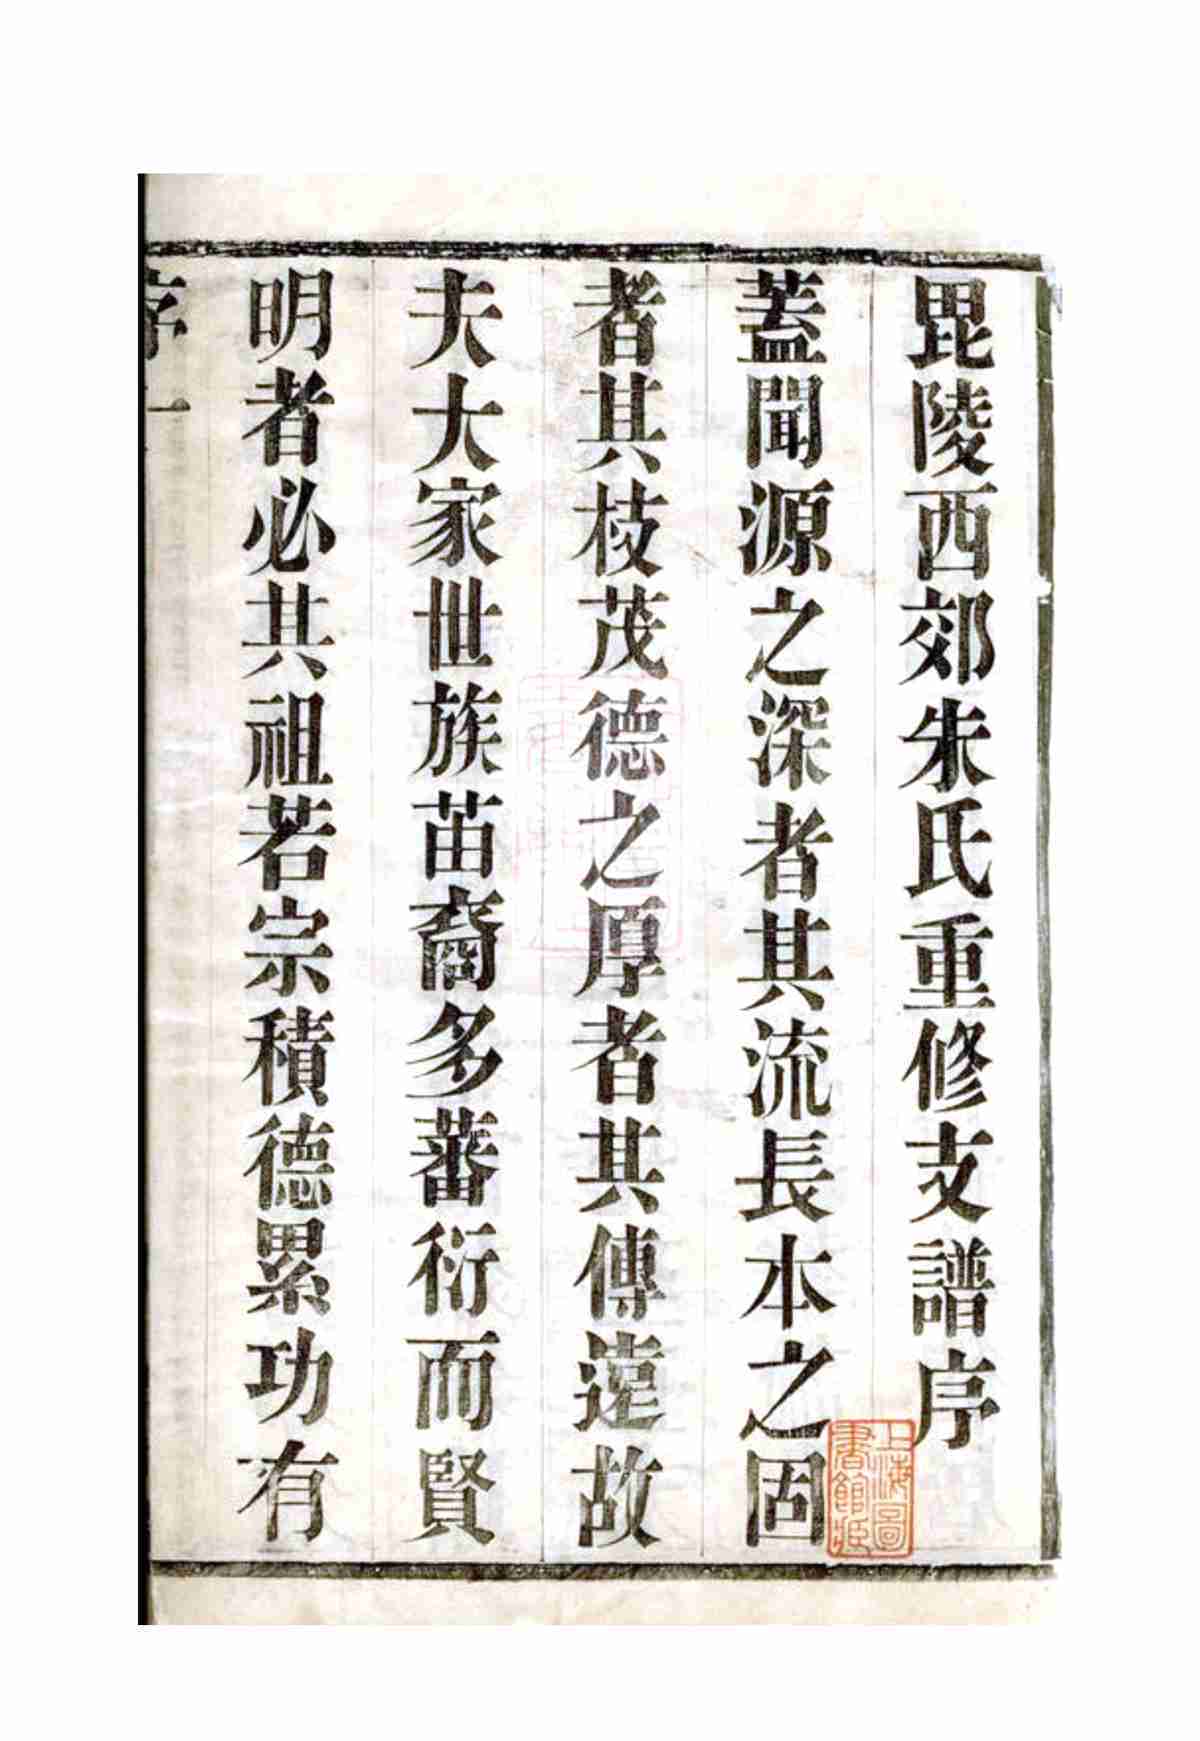 毘陵西郊朱氏重修支譜序
蓋聞源之深者其流長本之固
者其枝茂德之厚者其傳遠故
夫大家世族苗裔多蕃衍而賢
明者必其祖若宗積德累功有
序一
上海圖
書館藏